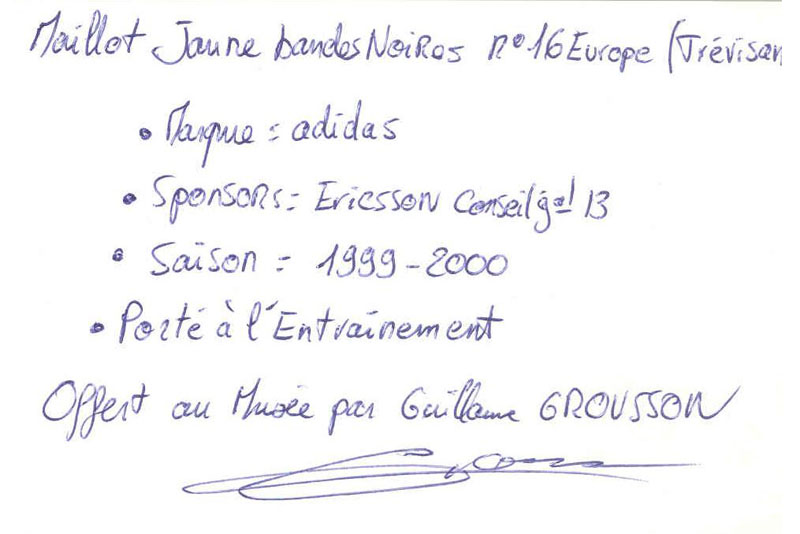 Maillot Jaune bandes Noires n°16 Europe (Trévisan
• Marque = adidas
• Sponsors = Ericsson Conseil gal 13
• Saison = 1999-2000
• Porté à l'Entraînement
Offert au Musée par Guillaume GROUSSON